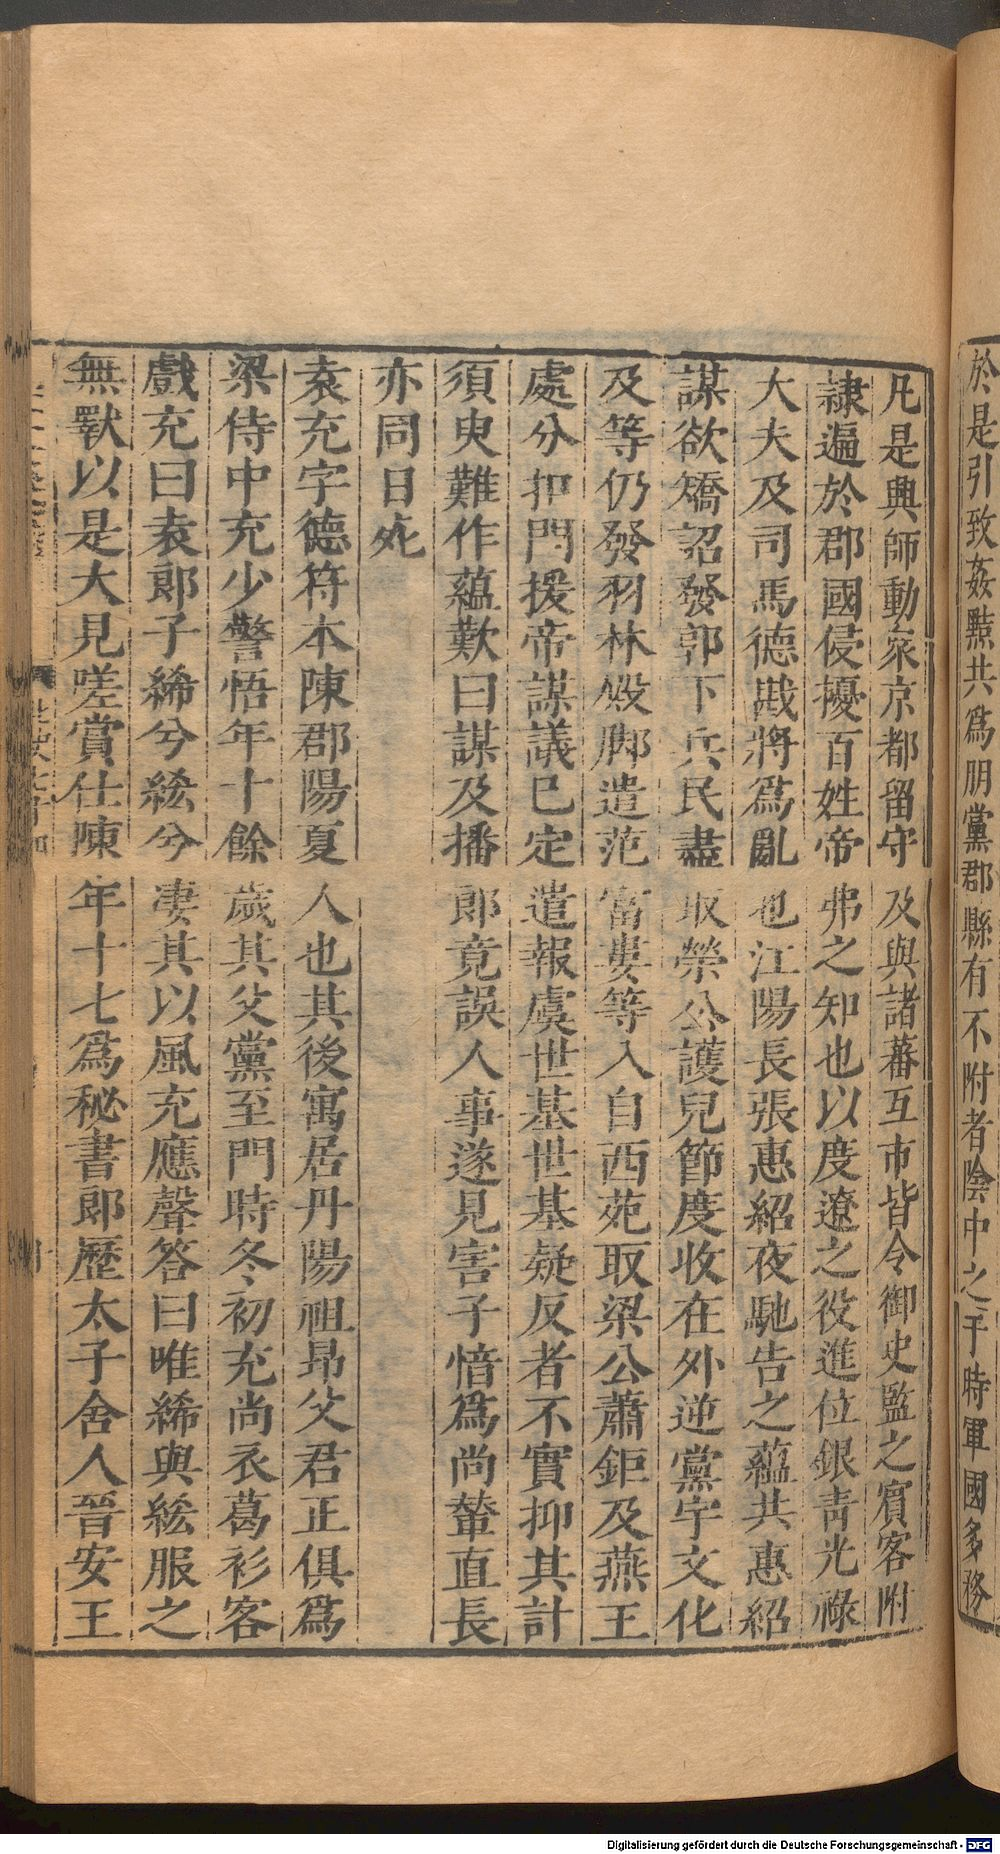 於是引致姦黠共爲朋黨郡縣有不附者陰中之于時軍國多務
凡是興師動衆京都留守及與諸蕃互市皆令御史監之賓客附
隸遍於郡國侵擾百姓帝弗之知也以度遼之役進位銀青光祿
大夫及司馬德戡將爲亂也江陽長張惠紹夜馳告之蘊共惠紹
謀欲矯詔發郭下兵民盡取榮公護兒節度收在外逆黨宇文化
及等仍發羽林殿脚遣范富婁等入自西苑取梁公蕭鉅及燕王
處分扣門援帝謀議已定遣報虞世基世基疑反者不實抑其計
須臾難作蘊歎曰謀及播郎竟誤人事遂見害子愔爲尚輦直長
亦同日死
袁充字德符本陳郡陽夏人也其後寓居丹陽祖昂父君正俱爲
梁侍中充少警悟年十餘歲其父黨至門時冬初充尚衣葛衫客
戲充曰袁郎子絺兮綌兮凄其以風充應聲答曰唯絺與綌服之
無斁以是大見嗟賞仕陳年十七爲秘書郎歷太子舍人晉安王
Digitalisierung gefördert durch die Deutsche Forschungsgemeinschaft - DFG